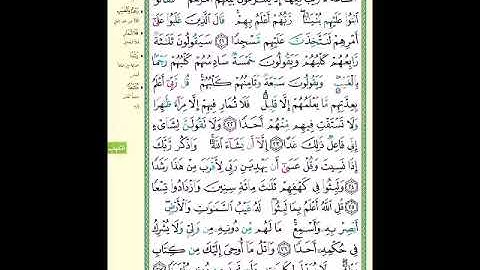 ٱبۡنُواْ عَلَيۡهِم بُنۡيَٰنٗاۖ رَّبُّهُمۡ أَعۡلَمُ بِهِمۡۚ قَالَ ٱلَّذِينَ غَلَبُواْ عَلَىٰٓ
أَمۡرِهِمۡ لَنَتَّخِذَنَّ عَلَيۡهِم مَّسۡجِدٗا ٢١ سَيَقُولُونَ ثَلَٰثَةٞ
رَّابِعُهُمۡ كَلۡبُهُمۡ وَيَقُولُونَ خَمۡسَةٞ سَادِسُهُمۡ كَلۡبُهُمۡ رَجۡمَۢا
بِٱلۡغَيۡبِۖ وَيَقُولُونَ سَبۡعَةٞ وَثَامِنُهُمۡ كَلۡبُهُمۡۚ قُل رَّبِّيٓ أَعۡلَمُ
بِعِدَّتِهِم مَّا يَعۡلَمُهُمۡ إِلَّا قَلِيلٞۗ فَلَا تُمَارِ فِيهِمۡ إِلَّا مِرَآءٗ ظَٰهِرٗا
وَلَا تَسۡتَفۡتِ فِيهِم مِّنۡهُمۡ أَحَدٗا ٢٢ وَلَا تَقُولَنَّ لِشَاْيۡءٍ
إِنِّي فَاعِلٞ ذَٰلِكَ غَدًا ٢٣ إِلَّآ أَن يَشَآءَ ٱللَّهُۚ وَٱذۡكُر رَّبَّكَ
إِذَا نَسِيتَ وَقُلۡ عَسَىٰٓ أَن يَهۡدِيَنِ رَبِّي لِأَقۡرَبَ مِنۡ هَٰذَا رَشَدٗا
٢٤ وَلَبِثُواْ فِي كَهۡفِهِمۡ ثَلَٰثَ مِاْئَةٖ سِنِينَ وَٱزۡدَادُواْ تِسۡعٗا
٢٥ قُلِ ٱللَّهُ أَعۡلَمُ بِمَا لَبِثُواْۖ لَهُۥ غَيۡبُ ٱلسَّمَٰوَٰتِ وَٱلۡأَرۡضِۖ
أَبۡصِرۡ بِهِۦ وَأَسۡمِعۡۚ مَا لَهُم مِّن دُونِهِۦ مِن وَلِيّٖ وَلَا يُشۡرِكُ
فِي حُكۡمِهِۦٓ أَحَدٗا ٢٦ وَٱتۡلُ مَآ أُوحِيَ إِلَيۡكَ مِن كِتَابِ